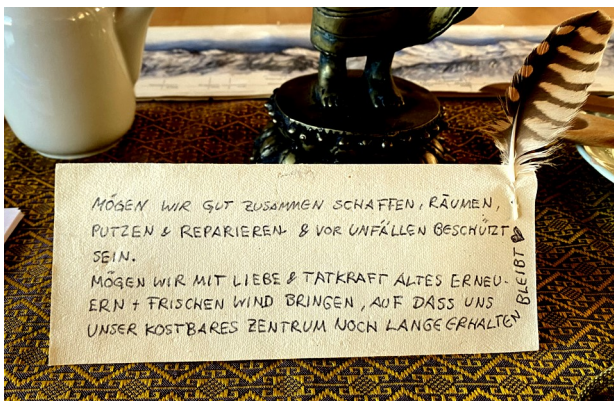 MÖGEN WIR GUT ZUSAMMEN SCHAFFEN, RÄUMEN,
PUTZEN & REPARIEREN & VOR UNFÄLLEN BESCHÜTZT
SEIN.
MÖGEN WIR MIT LIEBE & TATKRAFT ALTES ERNEU-
ERN + FRISCHEN WIND BRINGEN, AUF DASS UNS
UNSER KOSTBARES ZENTRUM NOCH LANGE ERHALTEN
BLEIBT ♥